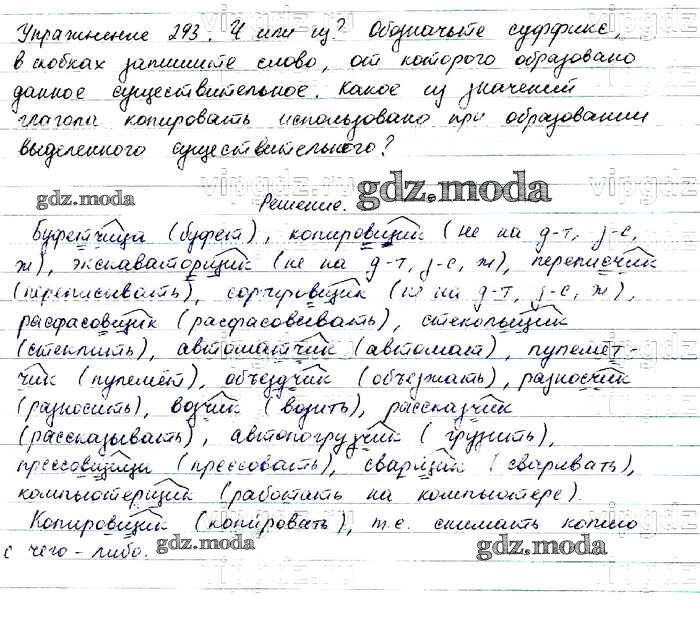 Упражнение 293. Ч или щ? Обозначьте суффикс,
в скобках запишите слово, от которого образовано
данное существительное. Какое из значений
глагола копировать использовано при образовании
выделенного существительного?
gdz.moda gdz.moda
Решение.
Буфетчица (буфет), копировщик (не на д-т, з-с,
ж), экскаваторщик (не на д-т, з-с, ж), переписчик
(переписывать), сортировщик (не на д-т, з-с, ж),
расфасовщик (расфасовывать), стекольщик
(стеклить), автоматчик (автомат), пулемёт-
чик (пулемёт), объездчик (объезжать), разносчик
(разносить), возчик (возить), рассказчик
(рассказывать), автопогрузчик (грузить),
прессовщицы (прессовать), сварщик (сваривать),
компьютерщик (работать на компьютере).
Копировщик (копировать), т.е. снимать копию
с чего-либо.
gdz.moda gdz.moda